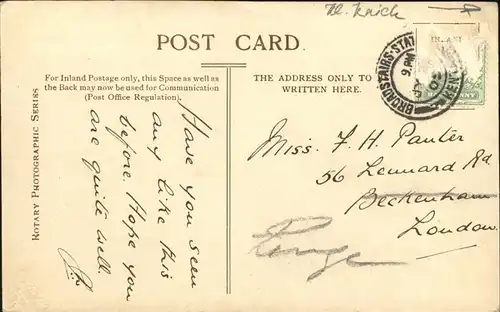 POST CARD.
For Inland Postage only, this Space as well as
the Back may now be used for Communication
(Post Office Regulation).
THE ADDRESS ONLY TO
WRITTEN HERE.
ROTARY PHOTOGRAPHIC SERIES
Have you seen
any like this
before. Hope you
are quite well.
BROADSTAIRS STAT
9. PM
Miss. F. H. Panter
56 Lennard Rd
Beckenham
London.
Penge